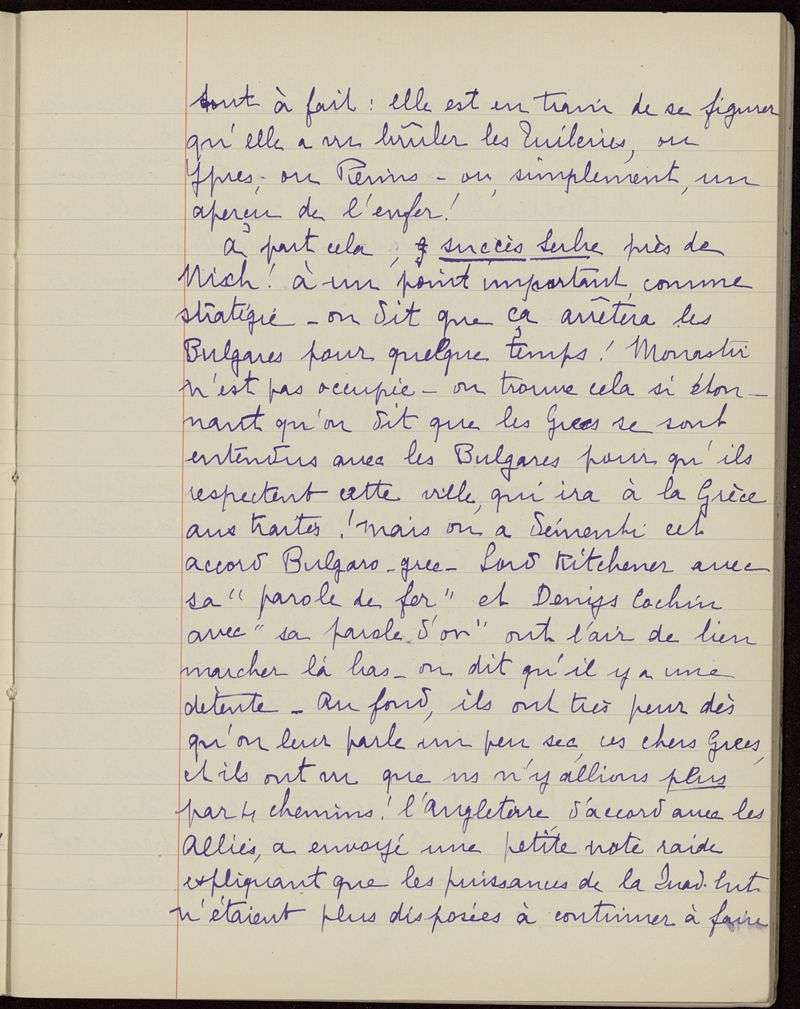 tout à fait : elle est en train de se figurer
qu'elle a vu brûler les Tuileries, ou
Ypres, ou Reims – ou, simplement, un
aperçu de l'enfer !
à part cela, succès Serbe près de
Nisch ! à un point important, comme
stratégie – on dit que ça arrêtera les
Bulgares pour quelque temps ! Monastir
n'est pas occupée – on trouve cela si éton-
nant qu'on dit que les Grecs se sont
entendus avec les Bulgares pour qu'ils
respectent cette ville, qui ira à la Grèce
aux traités ! mais on a démenti cet
accord Bulgaro-grec – Lord Kitchener avec
sa "parole de fer" et Denys Cochin
avec "sa parole d'or" ont l'air de bien
marcher là bas – on dit qu'il y a une
détente – Au fond, ils ont très peur dès
qu'on leur parle un peu sec, ces chers Grecs,
et ils ont vu que ns n'y allions plus
par 4 chemins ! l'Angleterre d'accord avec les
Alliés, a envoyé une petite note raide
expliquant que les puissances de la Quad. Ent.
n'étaient plus disposées à continuer à faire